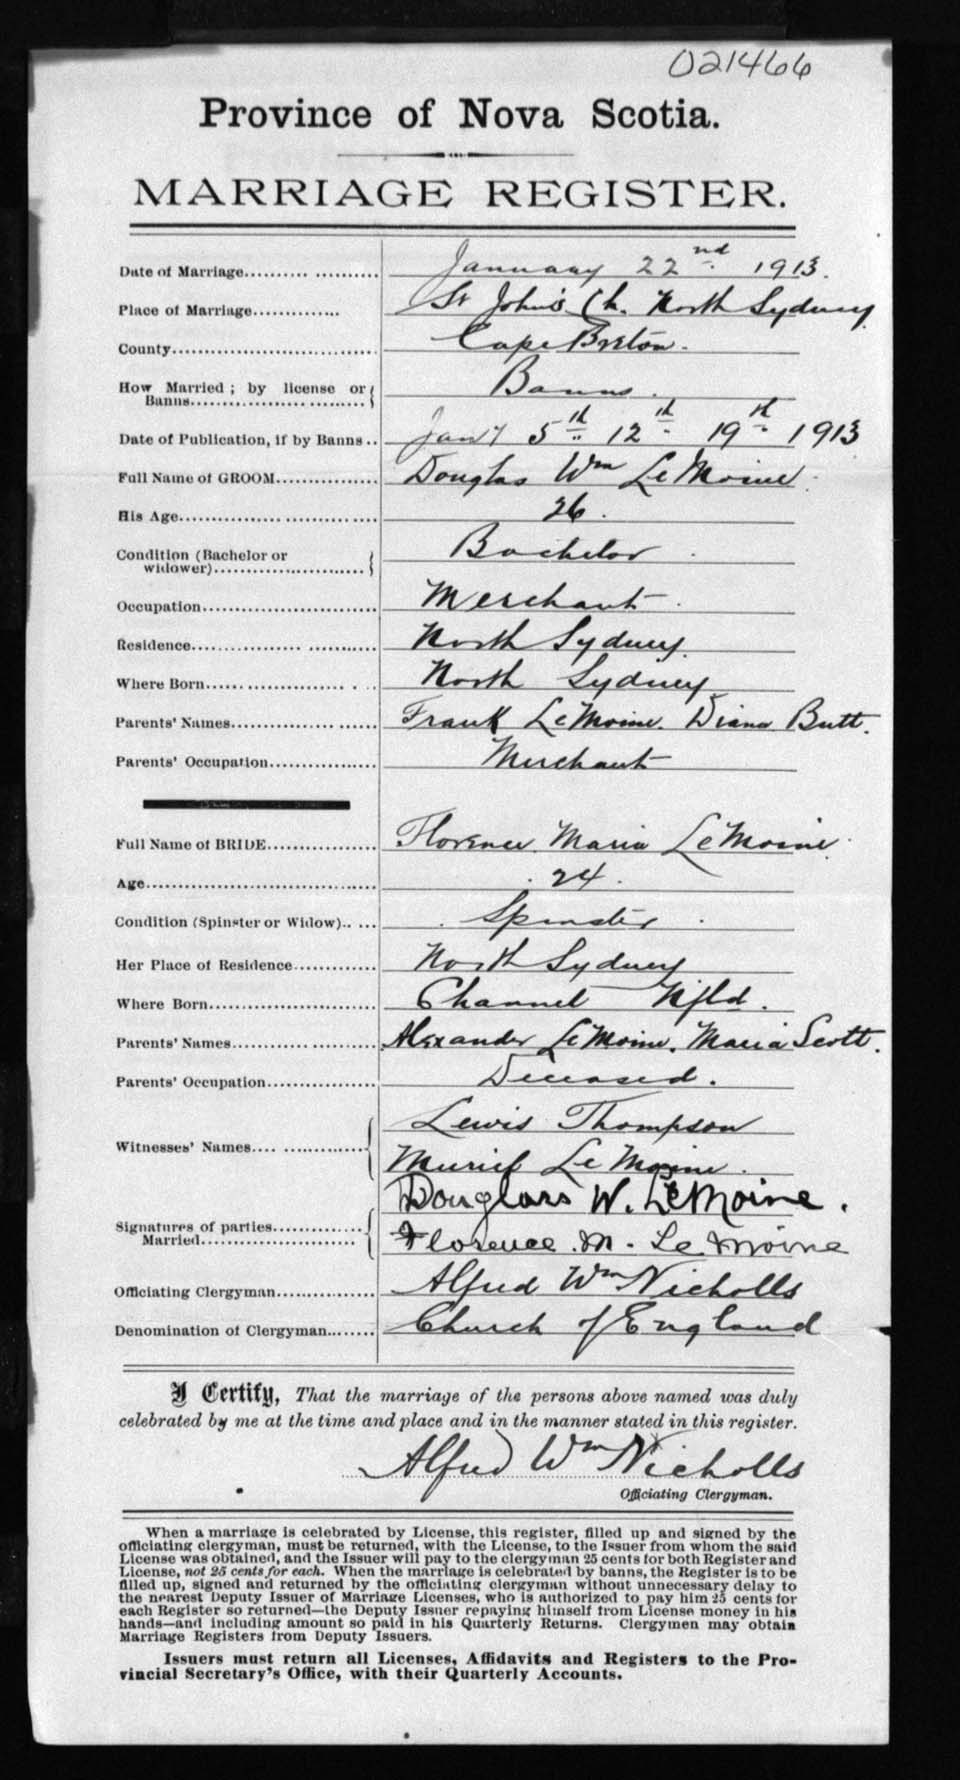 021466
Province of Nova Scotia.
MARRIAGE REGISTER.
Date of Marriage.......... ........... January 22nd. 1913.
Place of Marriage............. St John's Ch. North Sydney
County.................................. Cape Breton.
How Married ; by license or Banns................................ Banns.
Date of Publication, if by Banns .. Jan'y 5th 12th 19th 1913
Full Name of GROOM............... Douglas Wm LeMoine.
His Age................................. 26.
Condition (Bachelor or widower)............................. Bachelor.
Occupation............................. Merchant.
Residence............................... North Sydney.
Where Born............................ North Sydney
Parents' Names....................... Frank LeMoine. Diana Butt.
Parents' Occupation................ Merchant
Full Name of BRIDE................ Florence Maria LeMoine.
Age...................................... 24.
Condition (Spinster or Widow).. ... Spinster.
Her Place of Residence............. North Sydney
Where Born............................ Channel Nfld.
Parents' Names....................... Alexander LeMoine. Maria Scott.
Parents' Occupation................ Deceased.
Witnesses' Names.... .............. Lewis Thompson
Muriel Le Moine.
Signatures of parties Married....................... Douglass W. LeMoine.
Florence. M. Le Moine
Officiating Clergyman................. Alfred Wm Nicholls
Denomination of Clergyman........ Church of England
I Certify, That the marriage of the persons above named was duly
celebrated by me at the time and place and in the manner stated in this register.
Alfred Wm Nicholls
Officiating Clergyman.
When a marriage is celebrated by License, this register, filled up and signed by the
officiating clergyman, must be returned, with the License, to the Issuer from whom the said
License was obtained, and the Issuer will pay to the clergyman 25 cents for both Register and
License, not 25 cents for each. When the marriage is celebrated by banns, the Register is to be
filled up, signed and returned by the officiating clergyman without unnecessary delay to
the nearest Deputy Issuer of Marriage Licenses, who is authorized to pay him 25 cents for
each Register so returned—the Deputy Issuer repaying himself from License money in his
hands—and including amount so paid in his Quarterly Returns. Clergymen may obtain
Marriage Registers from Deputy Issuers.
Issuers must return all Licenses, Affidavits and Registers to the Pro-
vincial Secretary's Office, with their Quarterly Accounts.